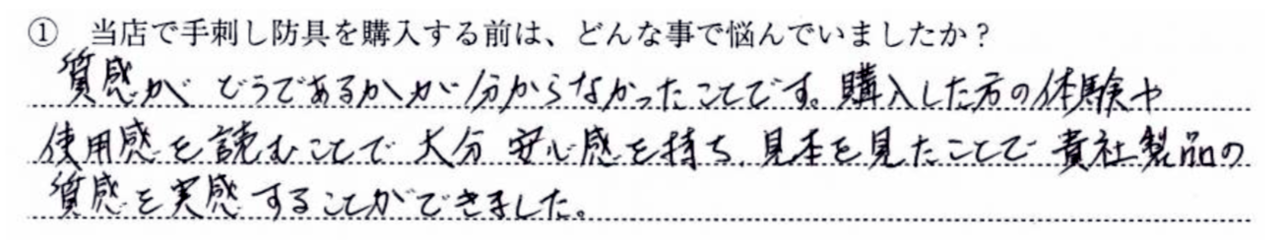 ① 当店で手刺し防具を購入する前は、どんな事で悩んでいましたか？
質感がどうであるかが分からなかったことです。購入した方の体験や
使用感を読むことで大分安心感を持ち、見本を見たことで貴社製品の
質感を実感することができました。